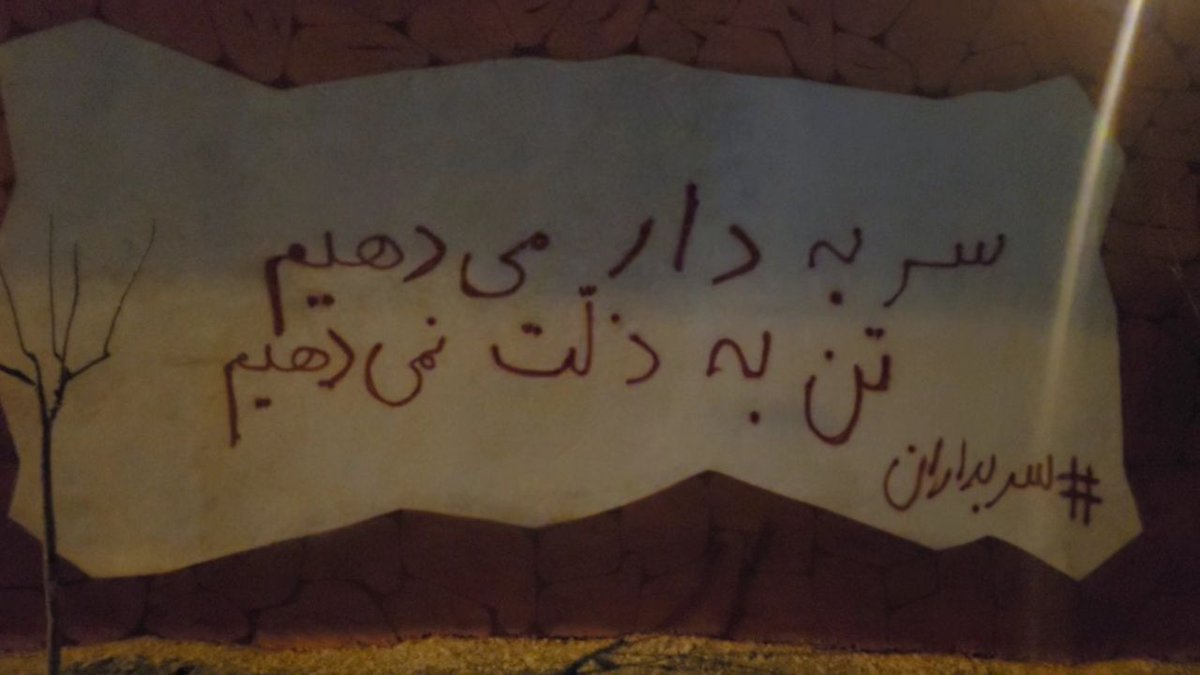 سر به دار می دهیم
تن به ذلّت نمی دهیم
#سربداران